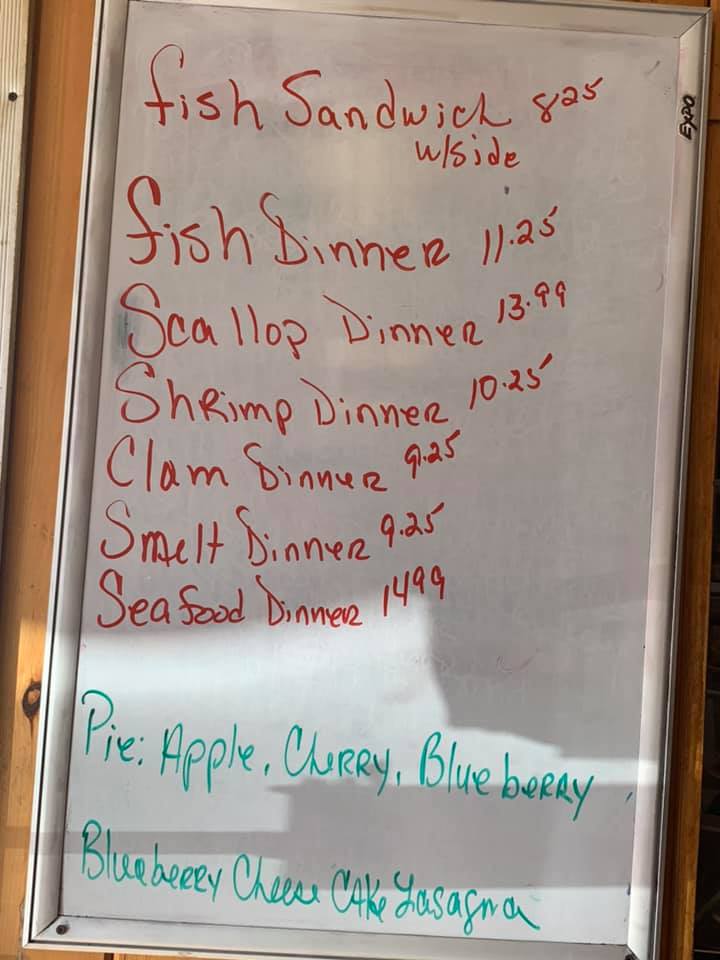 fish Sandwich 825
w/side
EXPO
fish Dinner 11.25
Scallop Dinner 13.99
Shrimp Dinner 10.25
Clam Dinner 9.25
Smelt Dinner 9.25
Seafood Dinner 1499
Pie: Apple, Cherry, Blueberry
Blueberry Cheese Cake Lasagna